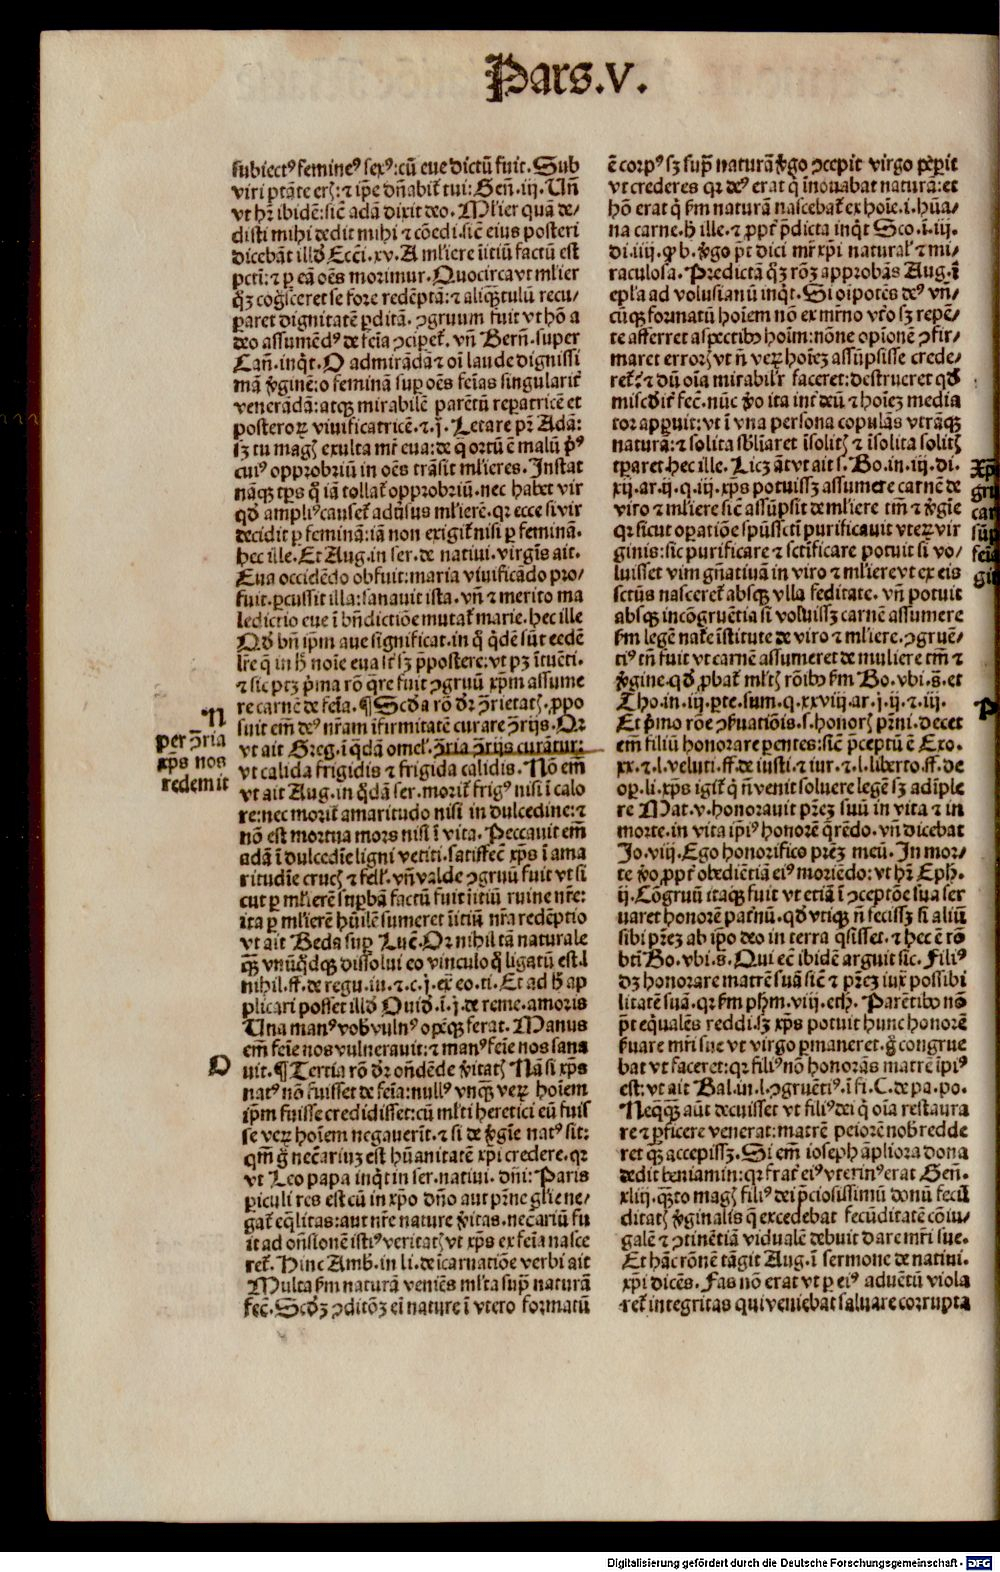 Pars.V.
subiectꝰ femineꝰ sexꝰ: cū eue dictū fuit. Sub
viri ptāte erꝭ: ⁊ ip̄e dn̄abit᷑ tui: Gen̄. iij. Un̄
vt hr̄ ibidē: sic̄ adā dixit deo. Ml̓ier quā de/
disti mihi dedit mihi ⁊ cōedi. sic̄ eius posteri
dicebāt illđ Ecc̄i. xv. A ml̓iere īitiū factū est
pctī: ⁊ ꝑ eā oēs morimur. Quocirca vt ml̓ier
ꝙꝫ cog̓sceret se fore redēptā: ⁊ aliq̄tulū recu/
ꝑaret dignitatē ꝑditā. ꝯgruum fuit vt hō a
deo assumēdꝰ de fēia ꝯciperet᷑. vn̄ Bern̄. super
Can̄. inq̓t. O admirādā ⁊ oī laude dignissi
mā v̓ginē: o feminā suꝑ oēs fēias singularit᷑
venerādā: atqꝫ mirabilē parētū reparatricē et
posteroꝝ viuificatricē. ⁊. j. Letare pr̄ Adā:
sꝫ tu magꝭ exulta mr̄ eua: de q̄ ortū ē malū p̓ꝰ
cuiꝰ opprobriū in oēs trāsit ml̓ieres. Instat
nāqꝫ tp̄s q̄ iā tollat᷑ opprobriū. nec habet vir
qđ ampliꝰ causet᷑ aduſus ml̓ierē. qꝛ ecce si vir
decidit ꝑ feminā: iā non exigit᷑ nisi ꝑ feminā.
hec ille. Et Aug. in ser. de natiui. virgīs ait.
Eua occidēdo obfuit: maria viuificādo pro/
fuit. ꝑcussit illa: sanauit ista. vn̄ ⁊ merito ma
ledictio eue ī bn̄dictiōe mutat᷑ marie. hec ille
Qđ bn̄ ip̄m aue significat. in q̄ q̄dē sūt eedē
lr̄e q̄ in ħ noīe eua lꝫ p̄postere: vt pꝫ ītuēti.
⁊ sic ptꝫ p̓ma rō q̄re fuit ꝯgruū xp̄m assume
re carnē de fēīa. ¶ Scđa rō dr̄ ꝯ̄rietatꝭ. ꝓpo
suit em̄ deꝰ nr̄am īfirmitatē curare ꝯ̄rijs. Qꝛ
vt ait Greg. ī q̄dā omel̓. ꝯ̄ria ꝯ̄rijs curātur:
vt calida frigidis ⁊ frigida calidis. Nō em̄
vt ait Aug. in q̄dā ser. morit᷑ frigꝰ nisi ī calo
re: nec morit᷑ amaritudo nisi in dulcedine: ⁊
nō est mortua mors nisi ī vita. Peccauit em̄
adā ī dulcedīe ligni vetiti. satisfec̄ xp̄s ī ama
ritudīe crucꝭ ⁊ fell̓. vn̄ valde ꝯgruū fuit vt si
cut ꝑ ml̓ierē suꝑbā factū fuit īitiū ruine nr̄e:
ita ꝑ ml̓ierē hūilē sumeret īitiū nr̄a redēptio
vt ait Beda suꝑ Luc̄. Qꝛ nihil tā naturale
qꝫ vnūq̓dqꝫ dissolui eo vinculo q̄ ligatū est. l.
nihil. ff. de regu. iu. ⁊. c. j. ex̄ eo. ti. Et ad ħ ap
plicari posset illđ Ouid̓. l. j. de reme. amoris
Una manꝰ vob̓ vulnꝰ opēqꝫ ferat. Manus
em̄ fēie nos vulnerauit: ⁊ manꝰ fēie nos sana
uit. ¶ Tertia rō dr̄ on̄dēde v̓itatꝭ Nā si xp̄s
natꝰ nō fuisset de fēia: nullꝰ vnqꝫ veꝝ hoīem
ip̄m fuisse credidisset: cū ml̓ti heretici eū fuis
se veꝝ hoīem negauerīt. ⁊ si de v̓gīe natꝰ sit:
qm̄ g̓ nec̄ariuꝫ est hūanitatē xp̄i credere. qꝛ
vt Leo papa inq̓t in ser. natiui. dn̄i: Paris
piculi res est cū in xp̄o dn̄o aut pr̄ne glīe ne/
gat᷑ eq̄litas: aut nr̄e nature v̓itas. nec̄ariū fu
it ad on̄sionē istiꝰ veritatꝭ vt xp̄s ex fēīa nasce
ret᷑. Hinc Amb̓. in li. de īcarnatiōe verbi ait
Multa ẜm naturā veniēs ml̓ta suꝑ naturā
fec̄. Scđꝫ ꝯditōꝫ ei nature ī vtero formatū
N
per ꝯ̄ria
xp̄s nos
redemit
O
ē corpꝰ sꝫ suꝑ naturā v̓go ꝯcepit virgo peꝑit
vt crederes qꝛ deꝰ erat q̓ īnouabat naturā: et
hō erat q̓ ẜm naturā nascebat᷑ ex hoīe. i. hūa/
na carne. ħ ille. ⁊ ꝓpt᷑ p̄dicta inq̓t Sco. ī. iij.
di. iiij. ꝙ b. v̓go pōt dici mr̄ xp̄i natural̓ ⁊ mi/
raculosa. Predictā qꝫ rōꝫ approbās Aug. ī
epl̓a ad volusianū inq̓t. Si oīpotēs deꝰ vn̄/
cūqꝫ formatū hoīem nō ex mr̄no vt̓o sꝫ repē/
te afferret aspectibꝰ hoīm: nōne opīonē ꝯfir/
maret errorꝭ vt n̄ veꝝ hoīeꝫ assūpsisse crede/
ret᷑: ⁊ dū oīa mirabil̓r faceret: destrueret qđ
mis̓cdit᷑ fec̄. nūc v̓o ita int᷑ deū ⁊ hoīeꝫ media
tor apꝑuit: vt ī vna persona copulās vtrāqꝫ
naturā: ⁊ solita sb̓liaret īsolitꝭ ⁊ īsolita solitꝭ
tꝑaret. hec ille. Licꝫ āt vt ait s. Bo. in. iij. di.
xij. ar. ij. q. iij. xp̄s potuissꝫ assumere carnē de
viro ⁊ ml̓iere sic̄ assūpsit de ml̓iere tm̄ ⁊ v̓gīe
qꝛ sicut oꝑatiōe spūssctī purificauit vteꝝ vir
ginis: sic purificare ⁊ sctīficare potuit si vo/
luisset vim gn̄atiuā in viro ⁊ ml̓iere vt ex eis
sctūs nasceret᷑ absqꝫ vlla feditate. vn̄ potuit
absqꝫ incōgruētia si voluissꝫ carnē assumere
ẜm legē nat᷑e īstitute de viro ⁊ ml̓iere. ꝯgruē/
tiꝰ tn̄ fuit vt carnē assumeret de muliere tm̄ ⁊
v̓gine. qđ ꝓbat᷑ ml̓tꝭ rōibꝰ ẜm Bo. vbi. s̄. et
Tho. in. iij. ꝑte. sum. q. xxviij. ar. j. ij. ⁊. iij.
Et p̓mo rōe ꝯẜuatiōis. s. honorꝭ pr̄ni. decet
em̄ filiū honorare ꝑentes: sic̄ p̄ceptū ē Exo.
xx. ⁊. l. veluti. ff. de iusti. ⁊ iur. ⁊. l. liberto. ff. de
oꝑ. li. xp̄s igit᷑ q̓ n̄ venit soluere legē sꝫ adīple
re Mat. v. honorauit pr̄eꝫ suū in vita ⁊ in
morte. in vita ip̄iꝰ honorē q̄rēdo. vn̄ dicebat
Jo. viij. Ego honorifico pr̄eꝫ meū. In mor/
te v̓o ꝓpt᷑ obediētiā eiꝰ moriēdo: vt hr̄ Eph.
ij. Cōgruū itaqꝫ fuit vt etiā ī ꝯceptōe sua ser
uaret honorē pat᷑nū. qđ vtiqꝫ n̄ fecissꝫ si aliū
sibi pr̄eꝫ ab ip̄o deo in terra q̄sisset. ⁊ hec ē rō
btī Bo. vbi. s̄. Qui eē ibidē arguit sic. Filiꝰ
dꝫ honorare matrē suā sic̄ ⁊ pr̄eꝫ iux̄ possibi
litatē suā. qꝛ ẜm phm̄. viij. etħ. Parētibꝰ nō
pōt eq̄ualēs reddi. sꝫ xp̄s potuit hunc honorē
ẜuare mr̄i sue vt virgo ꝑmaneret. g̓ congrue
bat vt faceret: qꝛ filiꝰ nō honorās matrē īpiꝰ
est: vt ait Bal. in. l. ꝯgruētiꝰ. ī fi. C. de pa. po.
Neqꝫqꝫ aūt decuisset vt filiꝰ dei q̓ oīa restaura
re ⁊ ꝑficere venerat: matrē peiorē nob̓ redde
ret qꝫ accepissꝫ. Si em̄ ioseph āpliora dona
dedit beniamin: qꝛ frat᷑ eiꝰ vterinꝰ erat Gen̄.
xliij. q̄to magꝭ filiꝰ dei p̄ciosissimū donū fecū
ditatꝭ v̓ginalis q̄ excedebat fecūditatē cōiu/
galē ⁊ ꝯtinētiā vidualē debuit dare mr̄i sue.
Et hāc rōnē tāgit Aug. ī sermone de natiui.
xp̄i dicēs. Fas nō erat vt ꝑ eiꝰ aduētū viola
ret᷑ integritas qui veniebat saluare corrupta
P
Digitalisierung gefördert durch die Deutsche Forschungsgemeinschaft - DFG